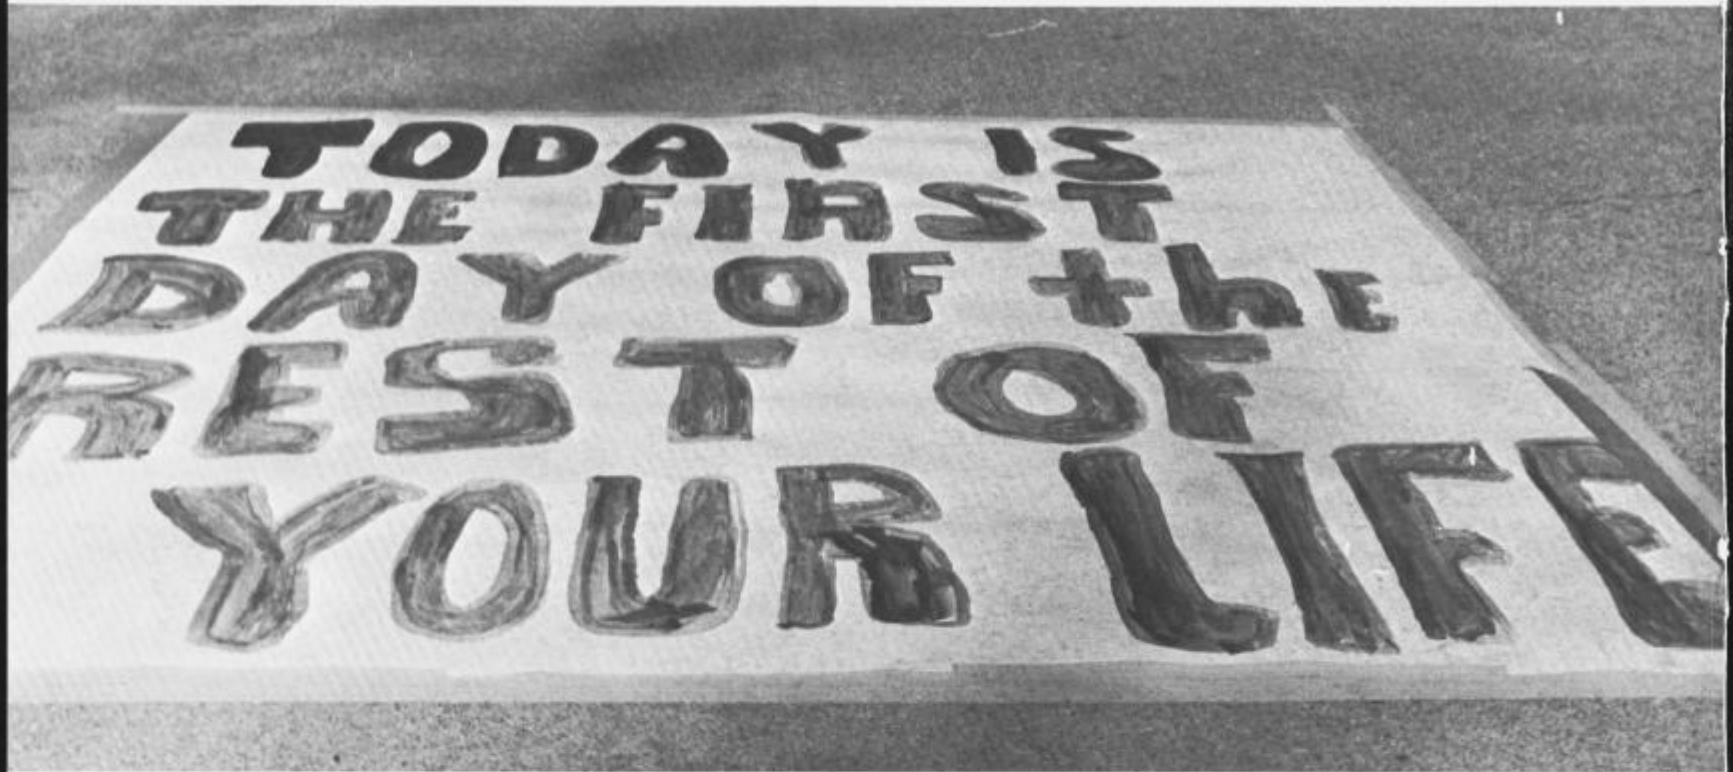 TODAY IS
THE FIRST
DAY OF thE
REST OF
YOUR LIFE